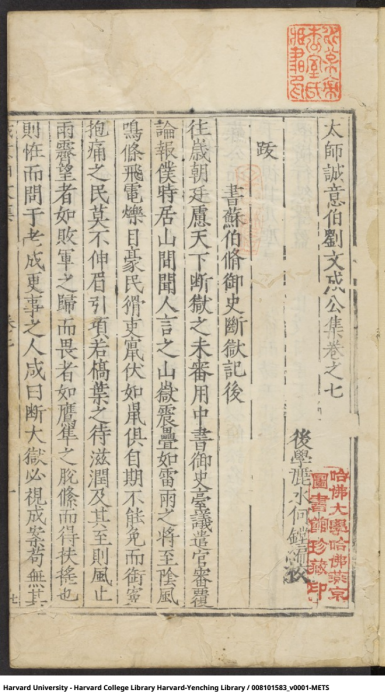 太師誠意伯劉文成公集卷之七
後學麗水何鏜編校
跋
書蘇伯脩御史斷獄記後
往歲朝廷慮天下斷獄之未審用中書御史臺議遣官審覆
論報僕時居山間聞人言之山嶽震疊如雷雨之將至陰風
鳴條飛電爍目豪民猾吏竄伏如鼠俱自期不能免而銜寃
抱痛之民莫不伸眉引項若槁葉之待滋潤及其至則風止
雨霽望者如敗軍之歸而畏者如鷹隼之脫絛而得扶搖也
則恠而問于老成更事之人咸曰斷大獄必視成案苟無其
哈佛大學哈佛燕京
圖書館珍藏印
Harvard University - Harvard College Library Harvard-Yenching Library / 008101583_v0001-METS